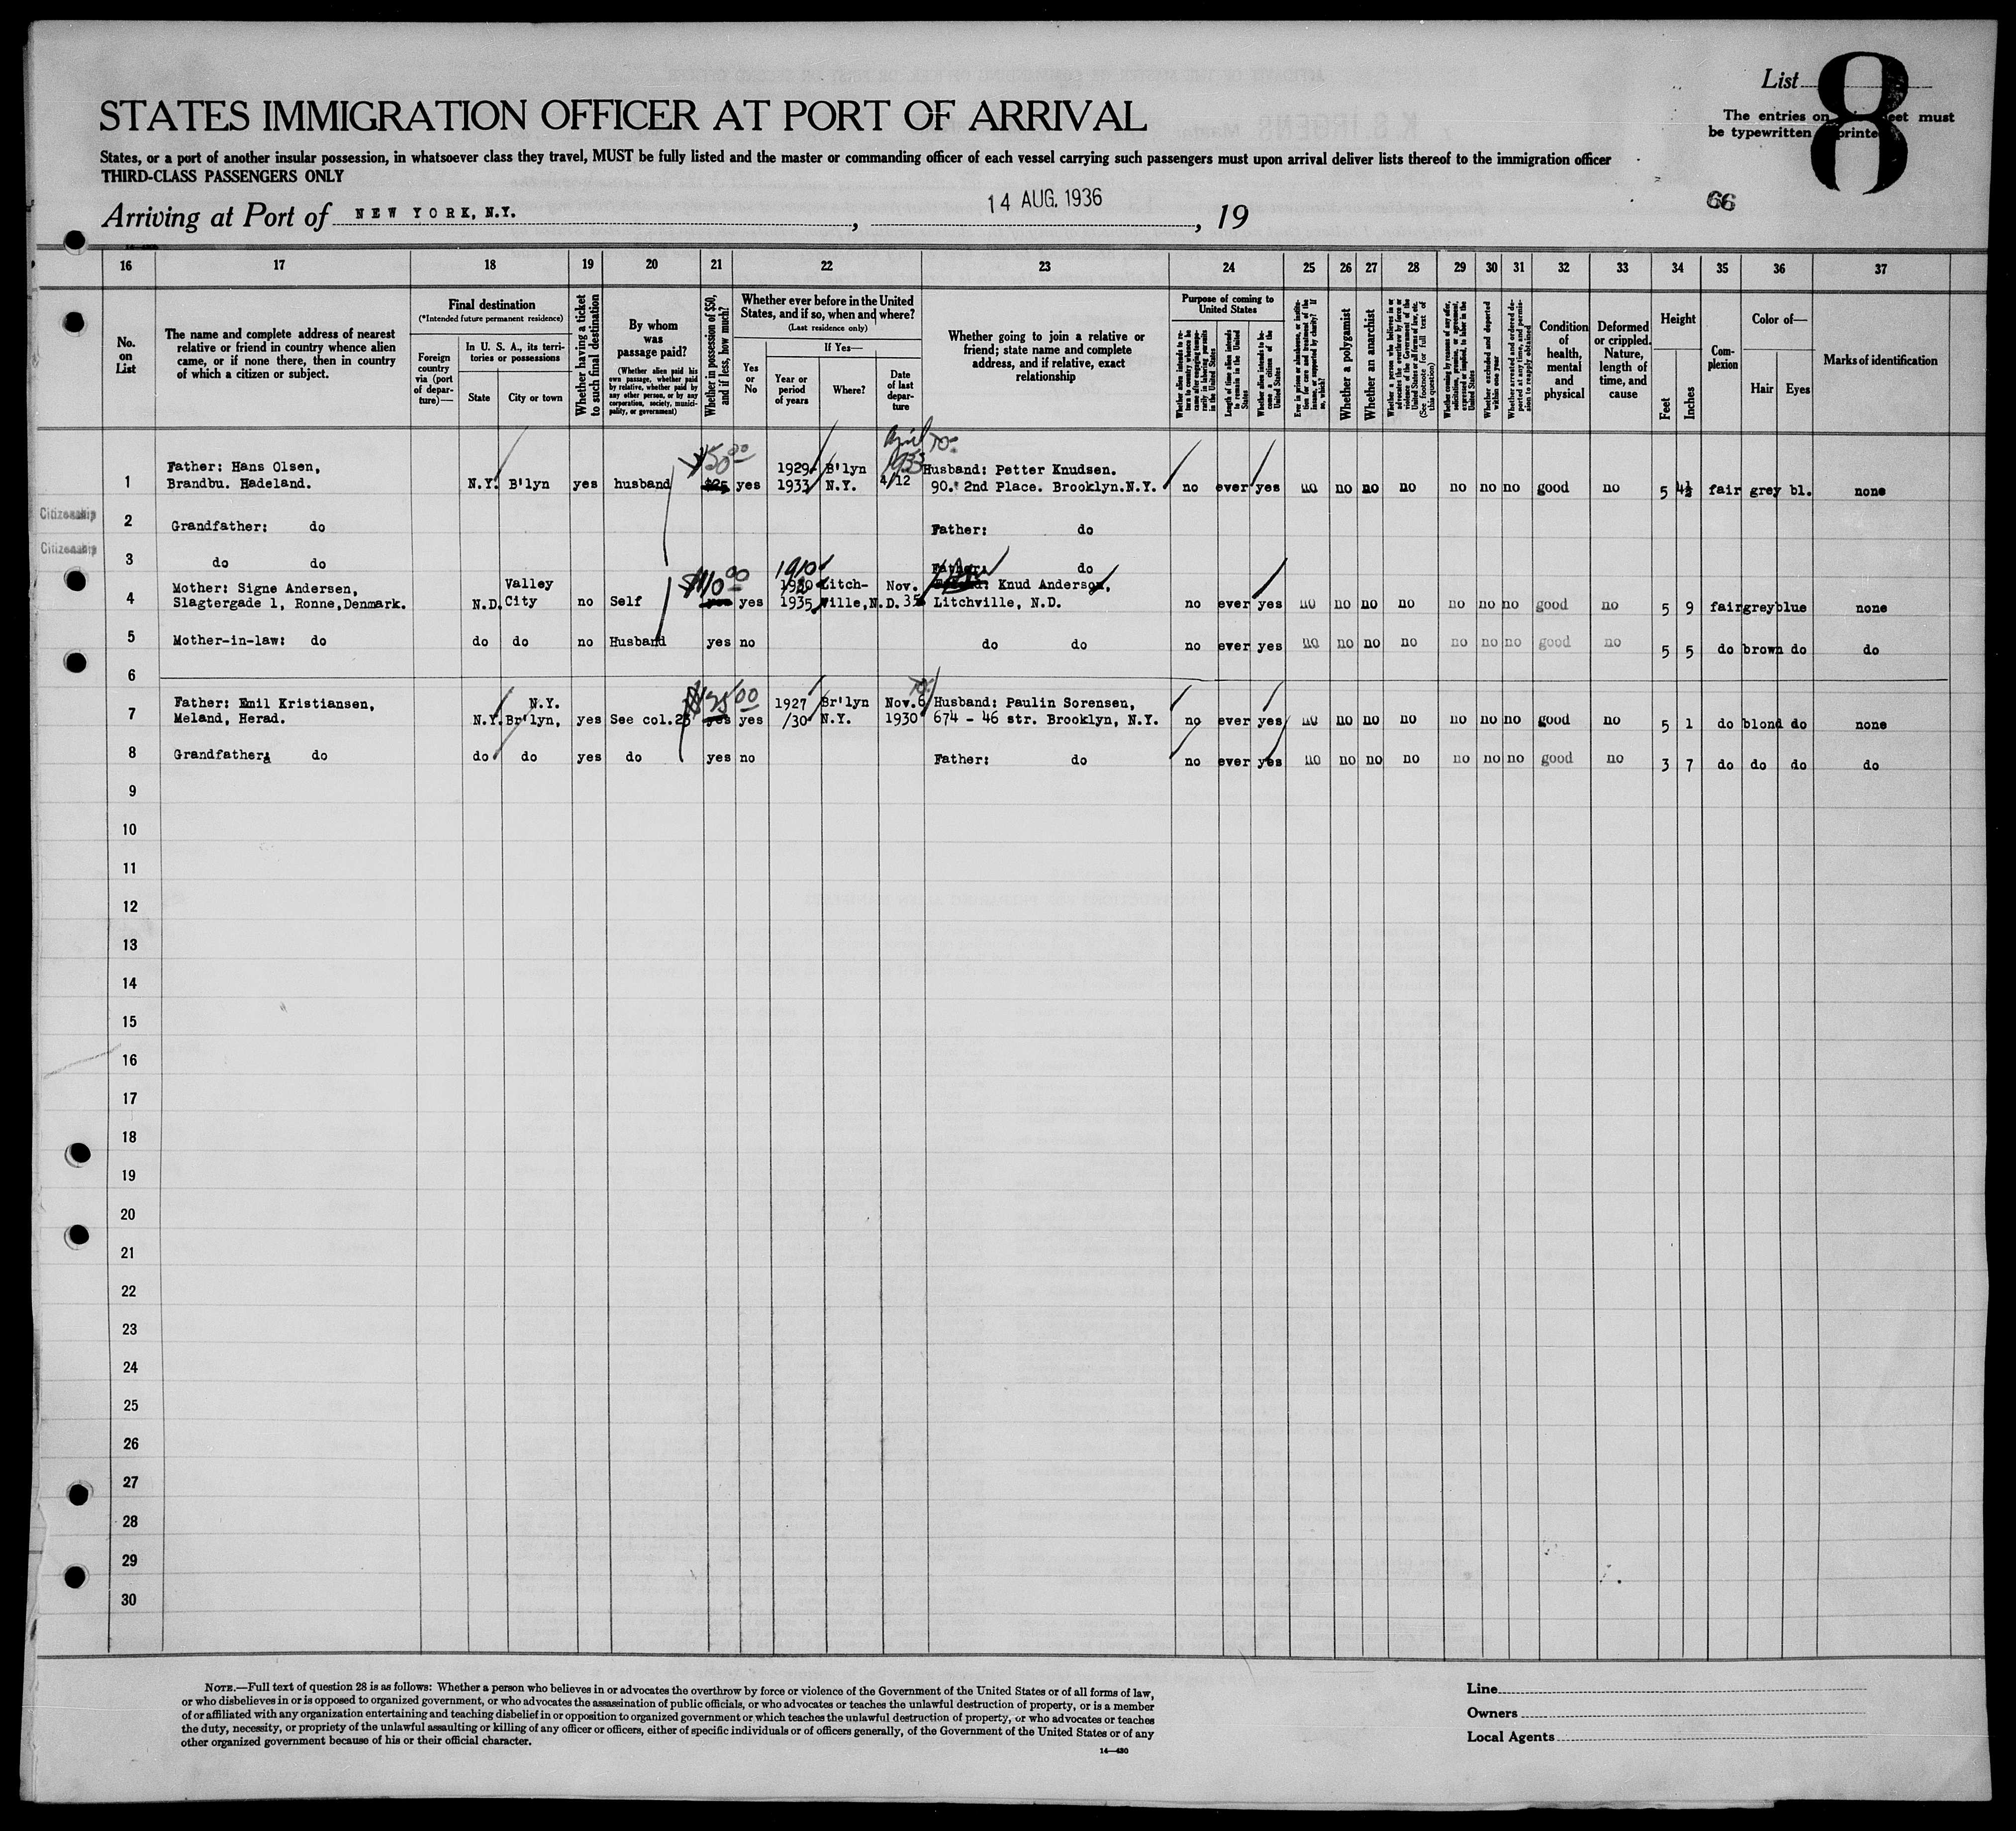 List 8
The entries on sheet must
be typewritten printed
STATES IMMIGRATION OFFICER AT PORT OF ARRIVAL
States, or a port of another insular possession, in whatsoever class they travel, MUST be fully listed and the master or commanding officer of each vessel carrying such passengers must upon arrival deliver lists thereof to the immigration officer
THIRD-CLASS PASSENGERS ONLY
Arriving at Port of NEW YORK, N.Y. , 14 AUG. 1936 , 19
66
16 17 18 19 20 21 22 23 24 25 26 27 28 29 30 31 32 33 34 35 36 37
No. on List
The name and complete address of nearest
relative or friend in country whence alien
came, or if none there, then in country
of which a citizen or subject.
Final destination
(*Intended future permanent residence)
Foreign country via (port of departure)—
In U. S. A., its territories or possessions
State
City or town
Whether having a ticket to such final destination
By whom was passage paid?
(Whether alien paid his own passage, whether paid by relative, whether paid by any other person, or by any corporation, society, municipality, or government)
Whether in possession of $50, and if less, how much?
Whether ever before in the United
States, and if so, when and where?
(Last residence only)
Yes or No
If Yes—
Year or period of years
Where?
Date of last departure
Whether going to join a relative or
friend; state name and complete
address, and if relative, exact
relationship
Purpose of coming to United States
Whether alien intends to return to country whence he came after engaging temporarily in laboring pursuits in the United States
Length of time alien intends to remain in the United States
Whether alien intends to become a citizen of the United States
Ever in prison or almshouse, or institution for care and treatment of the insane, or supported by charity? If so, which?
Whether a polygamist
Whether an anarchist
Whether a person who believes in or advocates the overthrow by force or violence of the Government of the United States or all forms of law, etc. (See footnote for full text of this question)
Whether coming by reason of any offer, solicitation, promise, or agreement, expressed or implied, to labor in the United States
Whether excluded and deported within one year
Whether arrested and ordered deported at any time, and permission to reapply obtained
Condition of health, mental and physical
Deformed or crippled. Nature, length of time, and cause
Height
Feet
Inches
Complexion
Color of—
Hair
Eyes
Marks of identification
April
$50.00 1933
Father: Hans Olsen, 1929- B'lyn Husband: Petter Knudsen.
1 Brandbu. Hadeland. N.Y. B'lyn yes husband $25 yes 1933 N.Y. 4/12 90. 2nd Place. Brooklyn.N.Y. no ever yes no no no no no no no good no 5 4½ fair grey bl. none
Citizenship
2 Grandfather: do Father: do
Citizenship
3 do do Father: do
$110.00 1910
Mother: Signe Andersen, Valley 1920 Litch- Nov. Knud Anderson,
4 Slagtergade 1, Ronne, Denmark. N.D. City no Self yes yes 1935 ville,N.D. 35 Litchville, N.D. no ever yes no no no no no no no good no 5 9 fair grey blue none
5 Mother-in-law: do do do no Husband yes no do do no ever yes no no no no no no no good no 5 5 do brown do do
6
$125.00
Father: Emil Kristiansen, N.Y. 1927 Br'lyn Nov.6 Husband: Paulin Sorensen,
7 Meland, Herad. N.Y. Br'lyn, yes See col.23 yes yes /30 N.Y. 1930 674 - 46 str. Brooklyn, N.Y. no ever yes no no no no no no no good no 5 1 do blond do none
8 Grandfather: do do do yes do yes no Father: do no ever yes no no no no no no no good no 3 7 do do do do
9
10
11
12
13
14
15
16
17
18
19
20
21
22
23
24
25
26
27
28
29
30
NOTE.—Full text of question 28 is as follows: Whether a person who believes in or advocates the overthrow by force or violence of the Government of the United States or of all forms of law,
or who disbelieves in or is opposed to organized government, or who advocates the assassination of public officials, or who advocates or teaches the unlawful destruction of property, or is a member
of or affiliated with any organization entertaining and teaching disbelief in or opposition to organized government or which teaches the unlawful destruction of property, or who advocates or teaches
the duty, necessity, or propriety of the unlawful assaulting or killing of any officer or officers, either of specific individuals or of officers generally, of the Government of the United States or of any
other organized government because of his or their official character.
14—430
Line
Owners
Local Agents